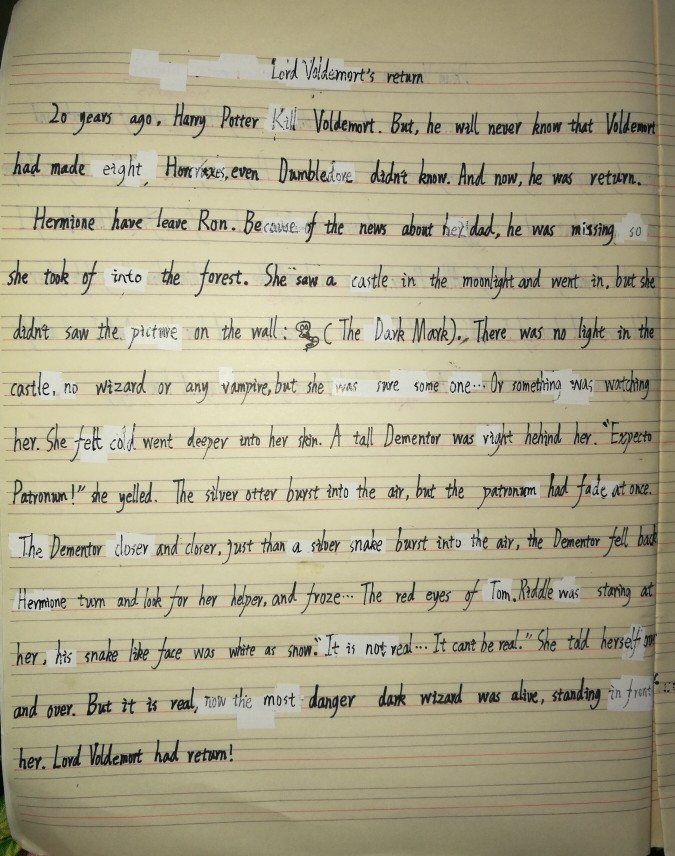 Lord Voldemort's return
20 years ago, Harry Potter Kill Voldemort. But, he will never know that Voldemort
had made eight Horcruxes, even Dumbledore didn't know. And now, he was return.
Hermione have leave Ron. Because of the news about her dad, he was missing so
she took of into the forest. She saw a castle in the moonlight and went in, but she
didn't saw the picture on the wall: (The Dark Mark). There was no light in the
castle, no wizard or any vampire, but she was sure some one... Or something was watching
her. She felt cold went deeper into her skin. A tall Dementor was right behind her. "Expecto
Patronum!" she yelled. The silver otter burst into the air, but the patronum had fade at once.
The Dementor closer and closer, just than a silver snake burst into the air, the Dementor fell back
Hermione turn and look for her helper, and froze... The red eyes of Tom. Riddle was staring at
her, his snake like face was white as snow. "It is not real... It cant be real." She told herself over
and over. But it is real, now the most danger dark wizard was alive, standing in front
her. Lord Voldemort had return!